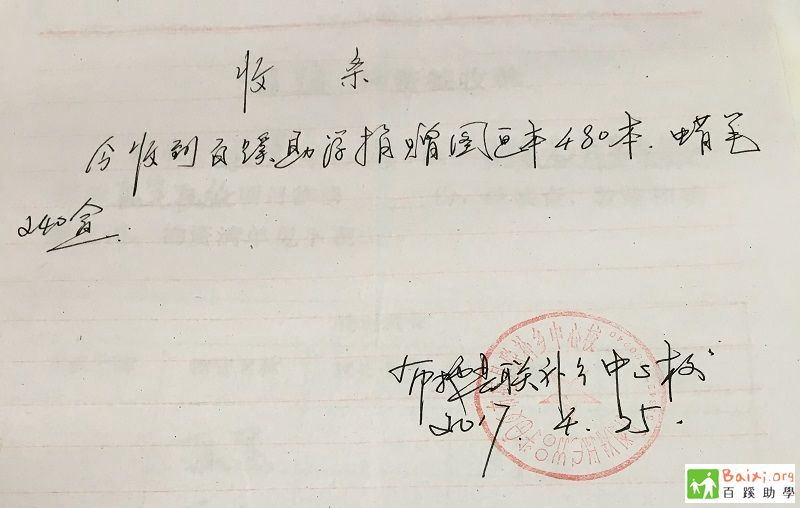 收条
今收到百蹊助学捐赠图画本480本、蜡笔
240盒.
布拖县联补乡中心校
2017.4.25.
Baixi.org
百蹊助學